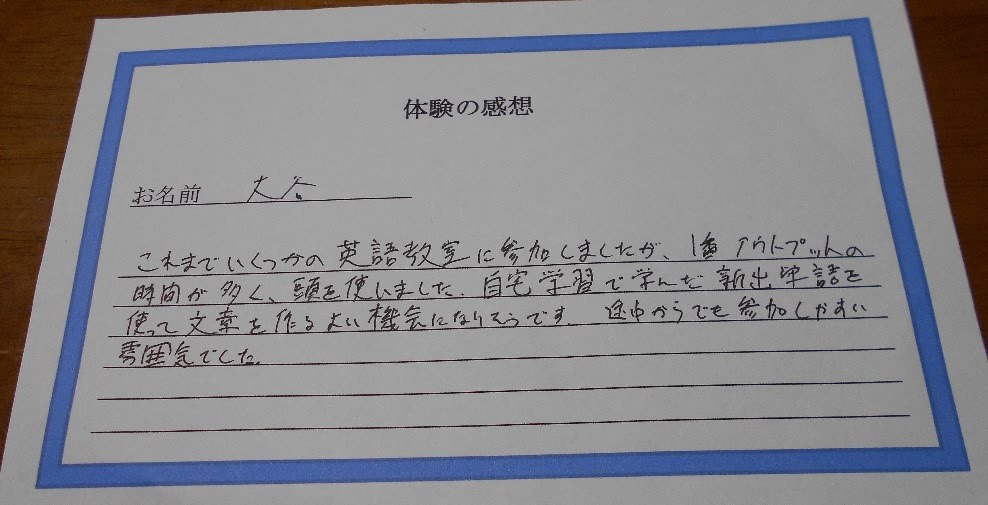 体験の感想
お名前 大谷
これまでいくつかの英語教室に参加しましたが、1番アウトプットの
時間が多く、頭を使いました。自宅学習で学んだ新出単語を
使って文章を作るよい機会になりそうです。途中からでも参加しやすい
雰囲気でした。